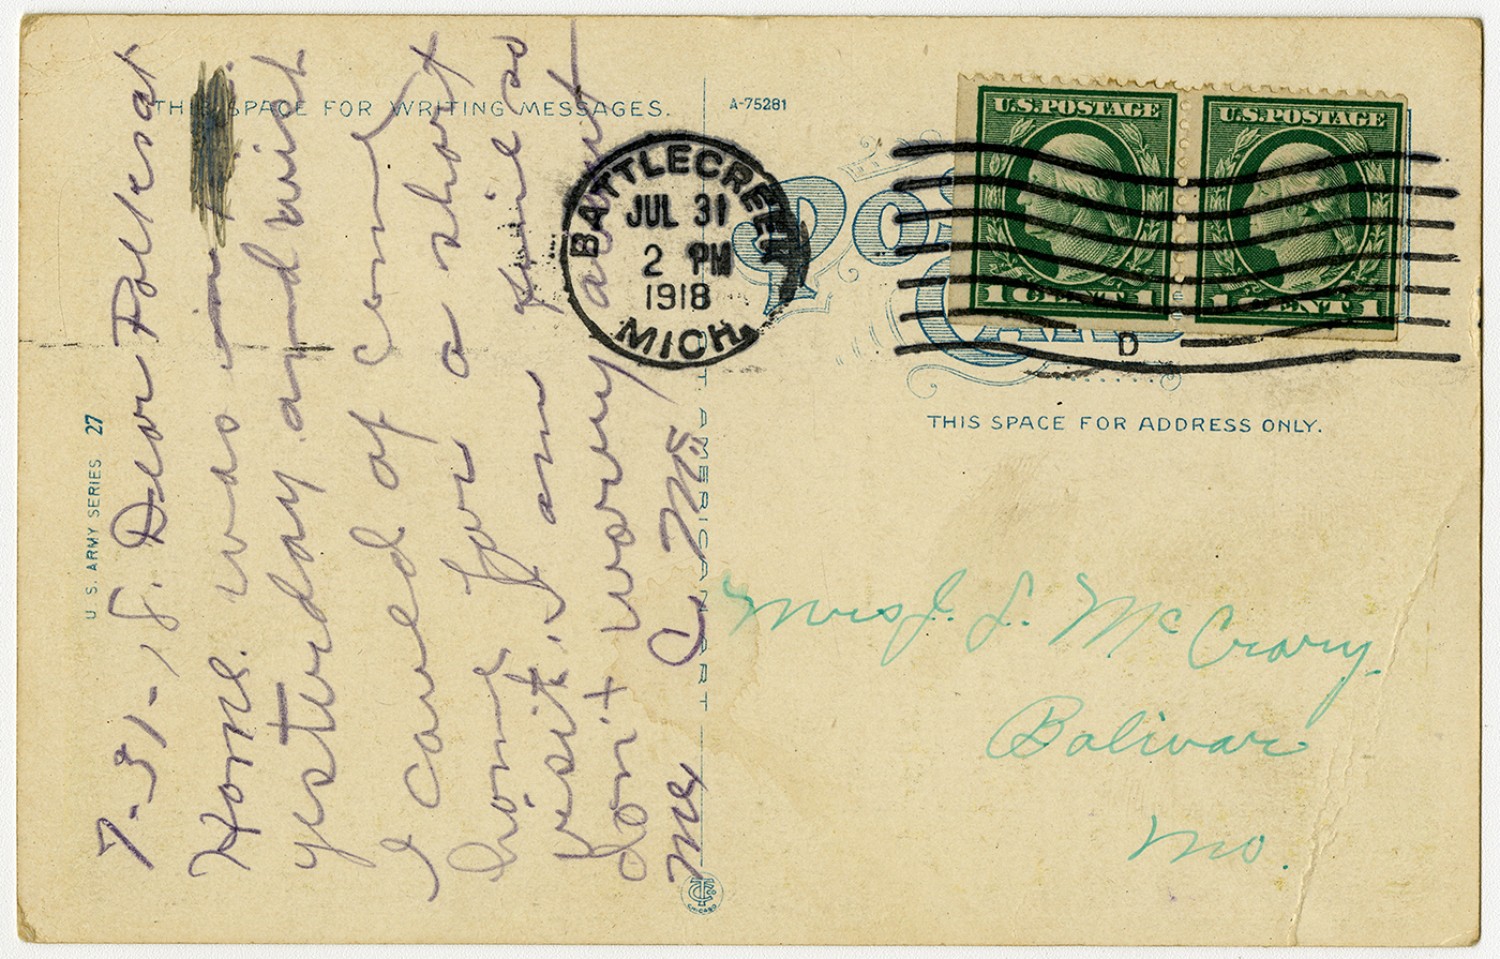 THIS SPACE FOR WRITING MESSAGES.
A-75281
U.S. ARMY SERIES 27
7-31-18. Dear Folks at
Home. was in
yesterday and wish
I caued of come
home for a short
visit, I am fine so
don't worry about
me, C. Mc
BATTLE CREEK
JUL 31
2 PM
1918
MICH.
U.S. POSTAGE
1 CENT 1
U.S. POSTAGE
1 CENT 1
D
POST
CARD
THIS SPACE FOR ADDRESS ONLY.
Mrs J. L. McCrary.
Bolivar
Mo.
CHICAGO